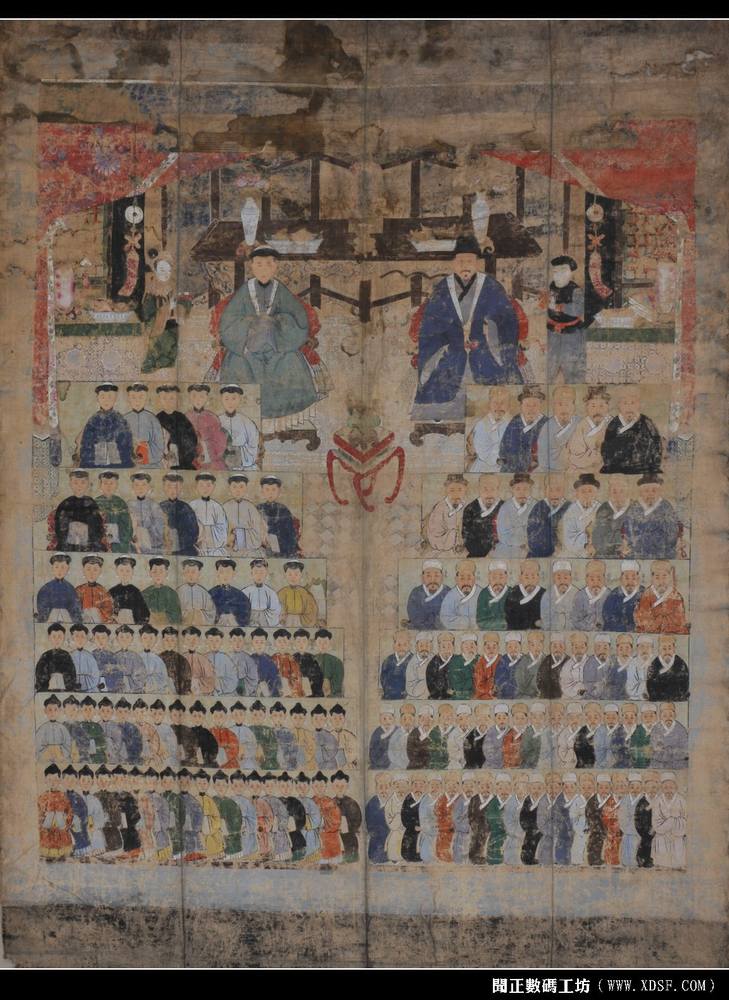 閱正數碼工坊（WWW.XDSF.COM）